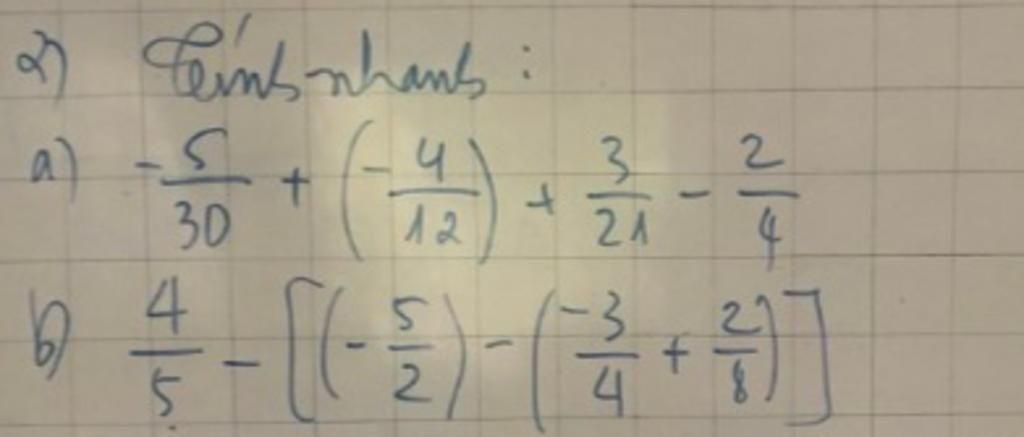 2) Tính nhanh :
a) -5/30 + (-4/12) + 3/21 - 2/4
b) 4/5 - [(-5/2) - (-3/4 + 2/8)]